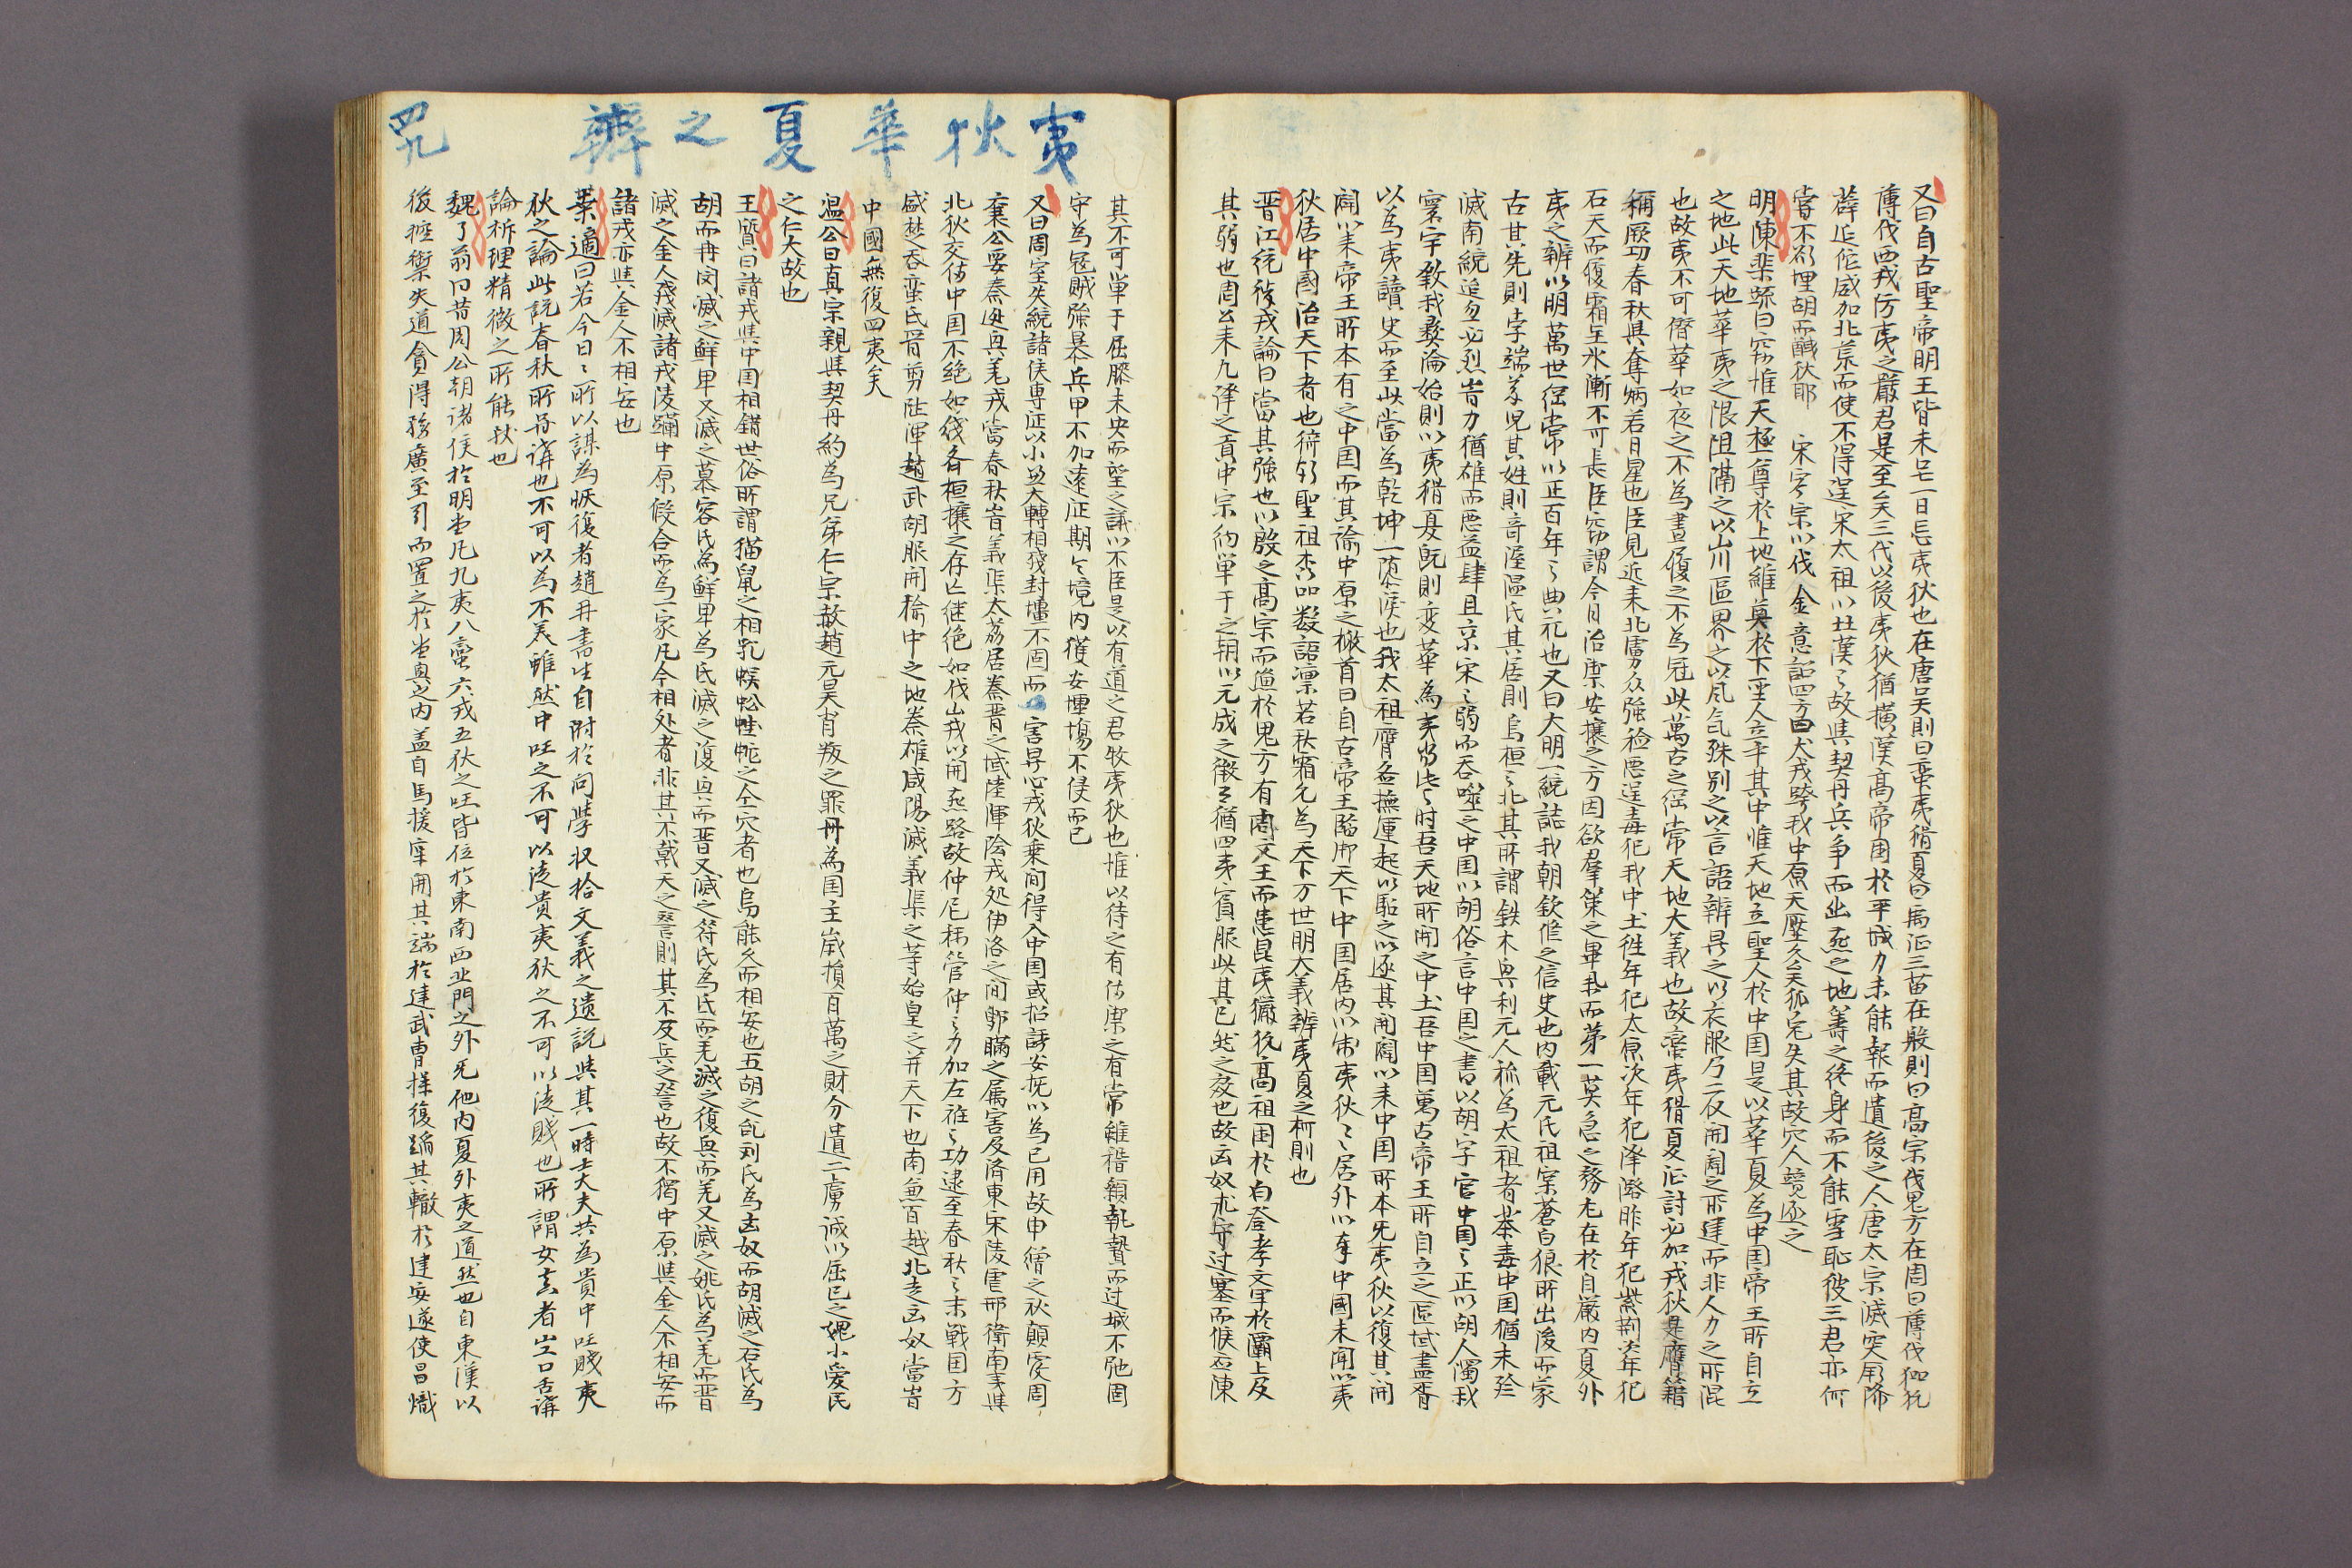 又曰自古聖帝明王皆未㞢一日忘夷狄也在唐吴則曰蛮夷猾夏曰為征三苗在殷則曰高宗伐鬼方在周曰薄伐玁狁
薄伐西戎厉夷之嚴君是至矣三代以後夷狄猶横漢高帝困於平城力未能報而遺後之人唐太宗滅突厥
薜延陀威加北荒而使不得逞宋太祖以故與契丹兵争而出燕之地籌之終身而不能雪恥彼三君亦何
嘗不欲埋胡而鹹狄耶　宋寧宗以伐金意詔四方曰犬戎跨我中原天厭久矣狐兔失其故穴人競逐之
明陳棐疏曰窃惟天極尊於上地維奠於下聖人立乎其中惟天地立聖人於中国是以華夏為中国帝王所自立
之地此天地華夷之限阻隔之以山川區界之以風氣殊别之以言語辨异之以衣服乃二仪開闢之所建而非人力之所混
也故夷不可僭華如夜之不為晝履之不為冠此萬古之經常天地大義也故蛮夷猾夏征討必加戎狄是膺籍
稱厥功春秋與奪炳若日星也臣見近来北虜众强稔恶逞毒犯我中土徃年犯太原次年犯泽潞昨年犯紫荆兹年犯
石天而履霜坚氷漸不可長臣窃謂今日治禦安攘之方因欲羣策之畢举而第一莫急之務尤在於自嚴内夏外
夷之辨以明萬世經常以正百年之典礼也又曰大明一統誌我朝欽修之信史也内載元氏祖宗蒼白狼所出後而蒙
古甘先則孛端萘児其姓則竒渥温氏其居則烏桓之北其所謂鉄木與利元人称為太祖者荼毒中国猶未殄
滅南統迨忽必烈嵜力猶雄而悪益肆且京宋之弱而吞噬之中国以胡俗言中国之書以胡字官中国之正以胡人濁我
寰宇斁我彝淪始則以夷猾夏既則变華為夷当此之时吾天地所開之中土吾中国萬古帝王所自立之區域盡胥
以為夷讀史而至此當為乾坤一慟涙也我太祖膺名撫運起以駈之以逐其開闢以来中国所本无夷狄以復其開
闢以来帝王所本有之中国而其諭中原之檄首曰自古帝王臨御天下中国居内以制夷狄夷狄居外以奉中國未聞以夷
狄居中國治天下者也猗欤聖祖杰品数語凛若秋霜允為天下万世明大義辨夷夏之柯則也
晋江統徙戎論曰當其強也以殷之高宗而憊於鬼方有周文王而患昆夷玁狁高祖困於白登孝文军於霸上及
其弱也周公来九譯之貢中宗納単于之朝以元成之微而猶四夷賓服此其已然之效也故匈奴求守过塞而候应陳
夷狄華夏之辨　罒九
其不可単于屈膝未央而望之議以不臣是以有道之君牧夷狄也惟以待之有俻禦之有常雖稽顙執贄而过城不弛固
守為冦賊強暴兵甲不加遠征期令境内獲安壃場不侵而已
又曰周室失統諸侯専征以小並大轉相残封壃不固而　害异心戎狄乗间得入中国或招誘安抚以為已用故申缯之秋顛覆周
襄公要秦遽興羌戎當春秋嵜義渠大荔居秦晋之域陸渾陰戎処伊洛之间鄋瞞之属害及濟東宋陵虐邢衛南夷與
北狄交侵中国不絶如綫斉桓攘之存亡继绝如伐山戎以開燕路故仲尼称管仲之力加左袵之功逮至春秋之末戰国方
盛楚吞蛮氏晋剪陸渾趙武胡服開榆中之地秦雄咸陽滅義渠之等始皇之并天下也南兼百越北走匈奴當嵜
中國無復四夷矣
温公曰真宗親與契丹約為兄弟仁宗赦趙元昊背叛之罪冊為国主歲損百萬之財分遺二虜诚以屈巳之愧小爱民
之仁大故也
王質曰諸戎與中国相錯世俗所謂猫鼠之相乳蜈蚣蛙蛇之仝穴者也烏能久而相安也五胡之乱刘氏為匈奴而胡滅之石氏為
胡而冉闵滅之鲜卑又滅之慕容氏為鲜卑為氏滅之復兴而晋又滅之符氏為氏而羌滅之復兴而羌又滅之姚氏為羌而晋
滅之金人残滅諸戎陵躏中原假合而為一家凡今相处者非其不戴天之讐則其不反兵之讐也故不獨中原與金人不相安而
諸戎亦與金人不相安也
葉適曰若今日之所以謀為恢復者趙井書生自附於问學収拾文義之遗説與其一時士大夫共為貴中国賤夷
狄之論此説春秋所并講也不可以為不美雖然中国之不可以徒貴夷狄之不可以徒賤也所謂女真者岂口舌講
論析理精微之所能伏也
魏了翁曰昔周公朝诸侯於明堂凡九夷八蠻六戎五狄之国皆位於東南西北門之外死他内夏外夷之道然也自東漢以
後控禦失道貪得務廣至引而置之於堂奥之内盖自馬援寔開其端於建武曹操復踵其轍於建安遂使昌熾